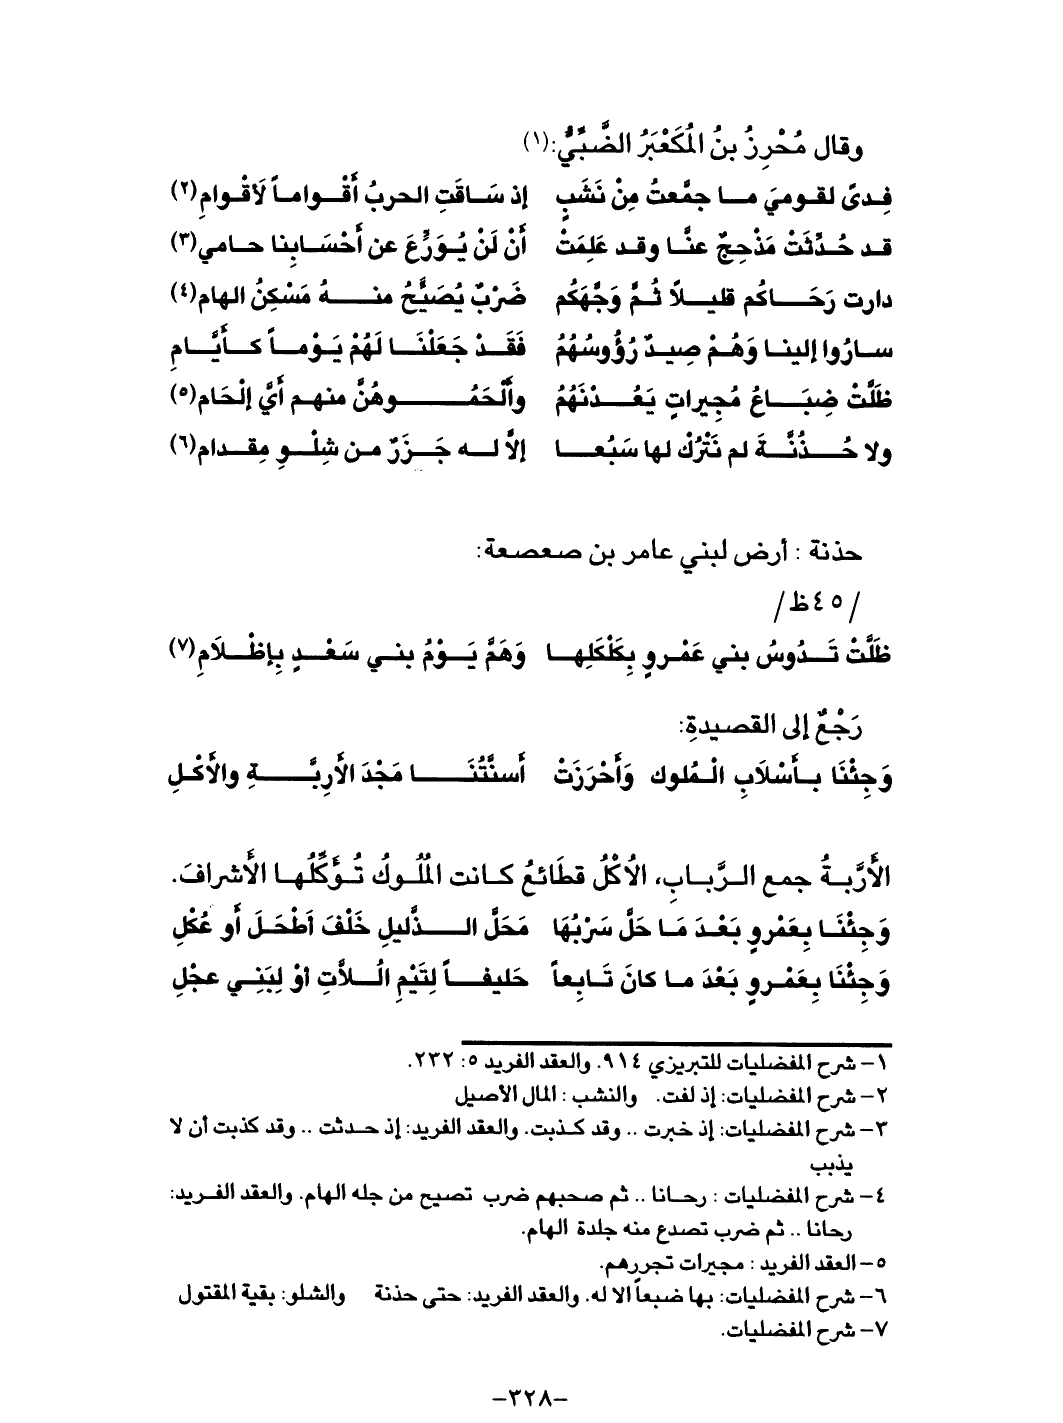 وقال مُحْرِزُ بنُ المُكَعْبَرُ الضَّبِّيُّ:(١)
فِدىً لقومي ما جمَّعتُ مِنْ نَشَبٍ إذ سَاقَتِ الحربُ أَقْواماً لَأقْوامِ(٢)
قد حُدِّثَتْ مَذْحِجٌ عنَّا وقد عَلِمَتْ أَنْ لَنْ يُوَرِّعَ عن أَحْسَابِنا حامي(٣)
دارت رَحَاكُم قليلاً ثُمَّ وَجَّهَكُم ضَرْبٌ يُصَيَّحُ منهُ مَسْكِنُ الهام(٤)
سارُوا إلينا وَهُمْ صِيدٌ رُؤُوسُهُمُ فَقَدْ جَعَلْنَا لَهُمْ يَوْماً كأَيَّامِ
ظَلَّتْ ضِبَاعُ مُجِيراتٍ يَعُدْنَهُمُ وأَلْحَمُوهُنَّ منهم أَيَّ إلْحَام(٥)
ولا حُذُنَّةَ لم نَتْرُكْ لها سَبُعا إلاَّ له جَزَرٌ من شِلْوِ مِقدام(٦)
حذنة : أرض لبني عامر بن صعصعة:
/٤٥ظ/
ظَلَّتْ تَدُوسُ بني عَمْروٍ بِكَلْكَلِها وَهَمَّ يَوْمُ بني سَعْدٍ بِإظْلَامِ(٧)
رَجْعٌ إلى القصيدةِ:
وَجِئْنَا بأَسْلَابِ الْمُلوك وَأَحْرَزَتْ أَسنَّتُنَا مَجْدَ الأَرِبَّةِ والأَكْلِ
الأَرَّبةُ جمع الرَّبابِ، الأُكْلُ قطَائعُ كانت المُلُوكُ تُؤَكِّلُها الأَشرافَ.
وَجِئْنَا بِعَمْروٍ بَعْدَ مَا حَلَّ سَرْبُهَا مَحَلَّ الذَّليلِ خَلْفَ أَطْحَلَ أَو عُكْلِ
وَجِئْنَا بِعَمْروٍ بَعْدَ ما كانَ تَابِعاً حَليفاً لِتَيْمِ اللاَّتِ أوْ لِبَنِي عجْلِ
١– شرح المفضليات للتبريزي ٩١٤. والعقد الفريد ٥: ٢٣٢.
٢– شرح المفضليات: إذ لفت. والنشب : المال الأصيل
٣– شرح المفضليات: إذ خبرت .. وقد كذبت. والعقد الفريد: إذ حدثت .. وقد كذبت أن لا
يذبب
٤– شرح المفضليات : رحانا .. ثم صحبهم ضرب تصيح من جله الهام. والعقد الفريد:
رحانا .. ثم ضرب تصدع منه جلدة الهام.
٥– العقد الفريد : مجيرات تجررهم.
٦– شرح المفضليات: بها ضبعاً الا له. والعقد الفريد: حتى حذنة والشلو: بقية المقتول
٧– شرح المفضليات.
–٣٢٨–